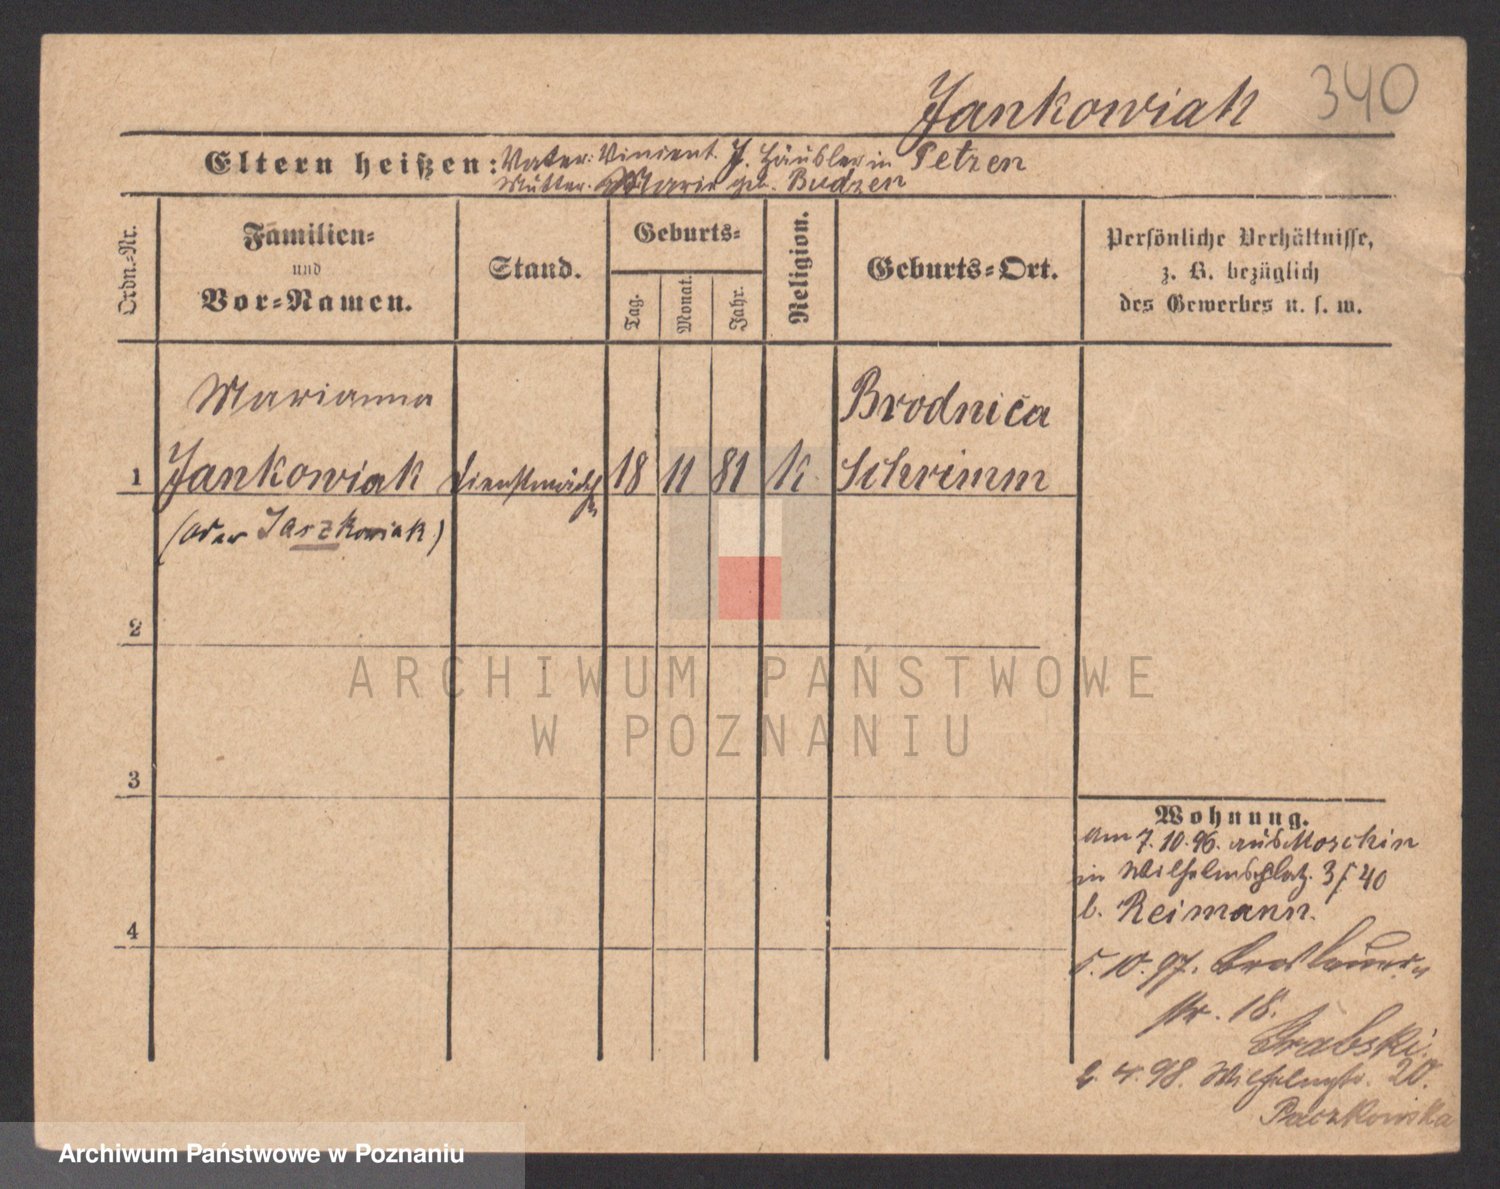 Jankowiak 340
Eltern heißen: Vater: Vincent J. Häusler in Petzen
Mutter: Marie geb. Budzen
Ordn.-Nr.
Familien-
und
Vor-Namen.
Stand.
Geburts-
Tag.
Monat.
Jahr.
Religion.
Geburts-Ort.
Persönliche Verhältnisse,
z. B. bezüglich
des Gewerbes u. s. w.
Marianna Brodnica
1 Jankowiak Dienstmädch 18 11 81 k. Schrimm
(oder Jaszkowiak)
2
3
4
Wohnung.
am 7.10.96. aus Moschin
in Wilhelmsplatz. 3/40
b. Reimann.
5.10.97. Breslauer
str. 18.
Grabski.
2.4.98. Wilhelmstr. 20.
Paczkowska
ARCHIWUM PAŃSTWOWE
W POZNANIU
Archiwum Państwowe w Poznaniu